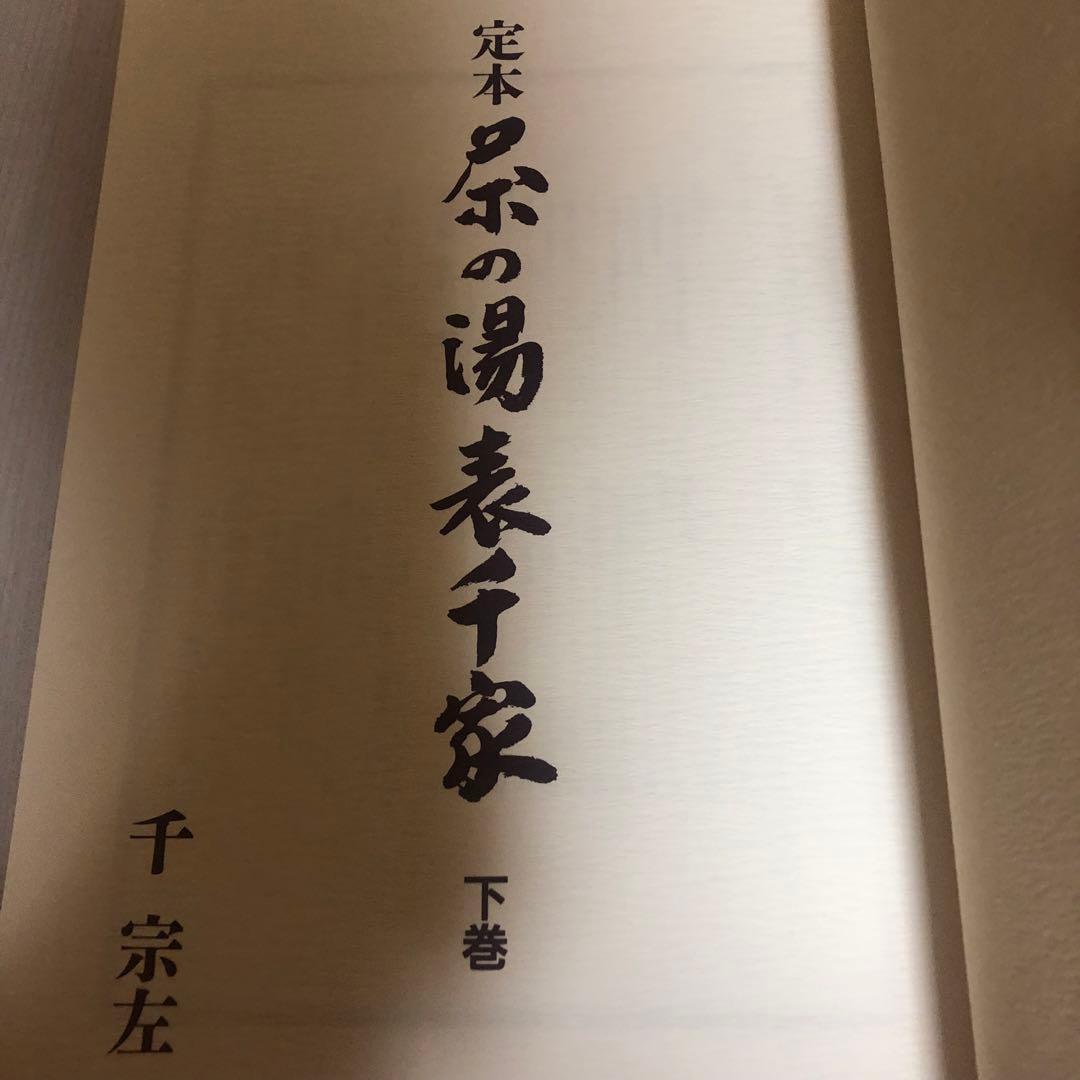 定本 茶の湯表千家 下巻
千 宗左